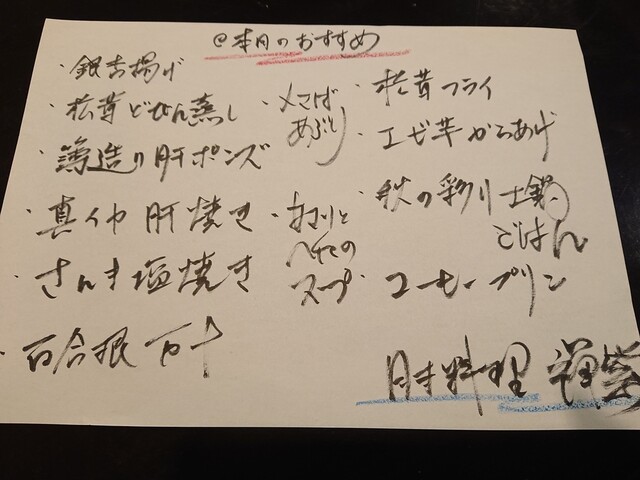 @本日のおすすめ
・銀杏揚げ
・松茸どびん蒸し
造り肝ポンズ
・真イカ肝焼き
・さんま塩焼き
・百合根
・メサバ
あぶり
スープ
・松茸フライ
・エビ芋からあげ
・秋の彩り土鍋
ごはん
・コーヒープリン
料理